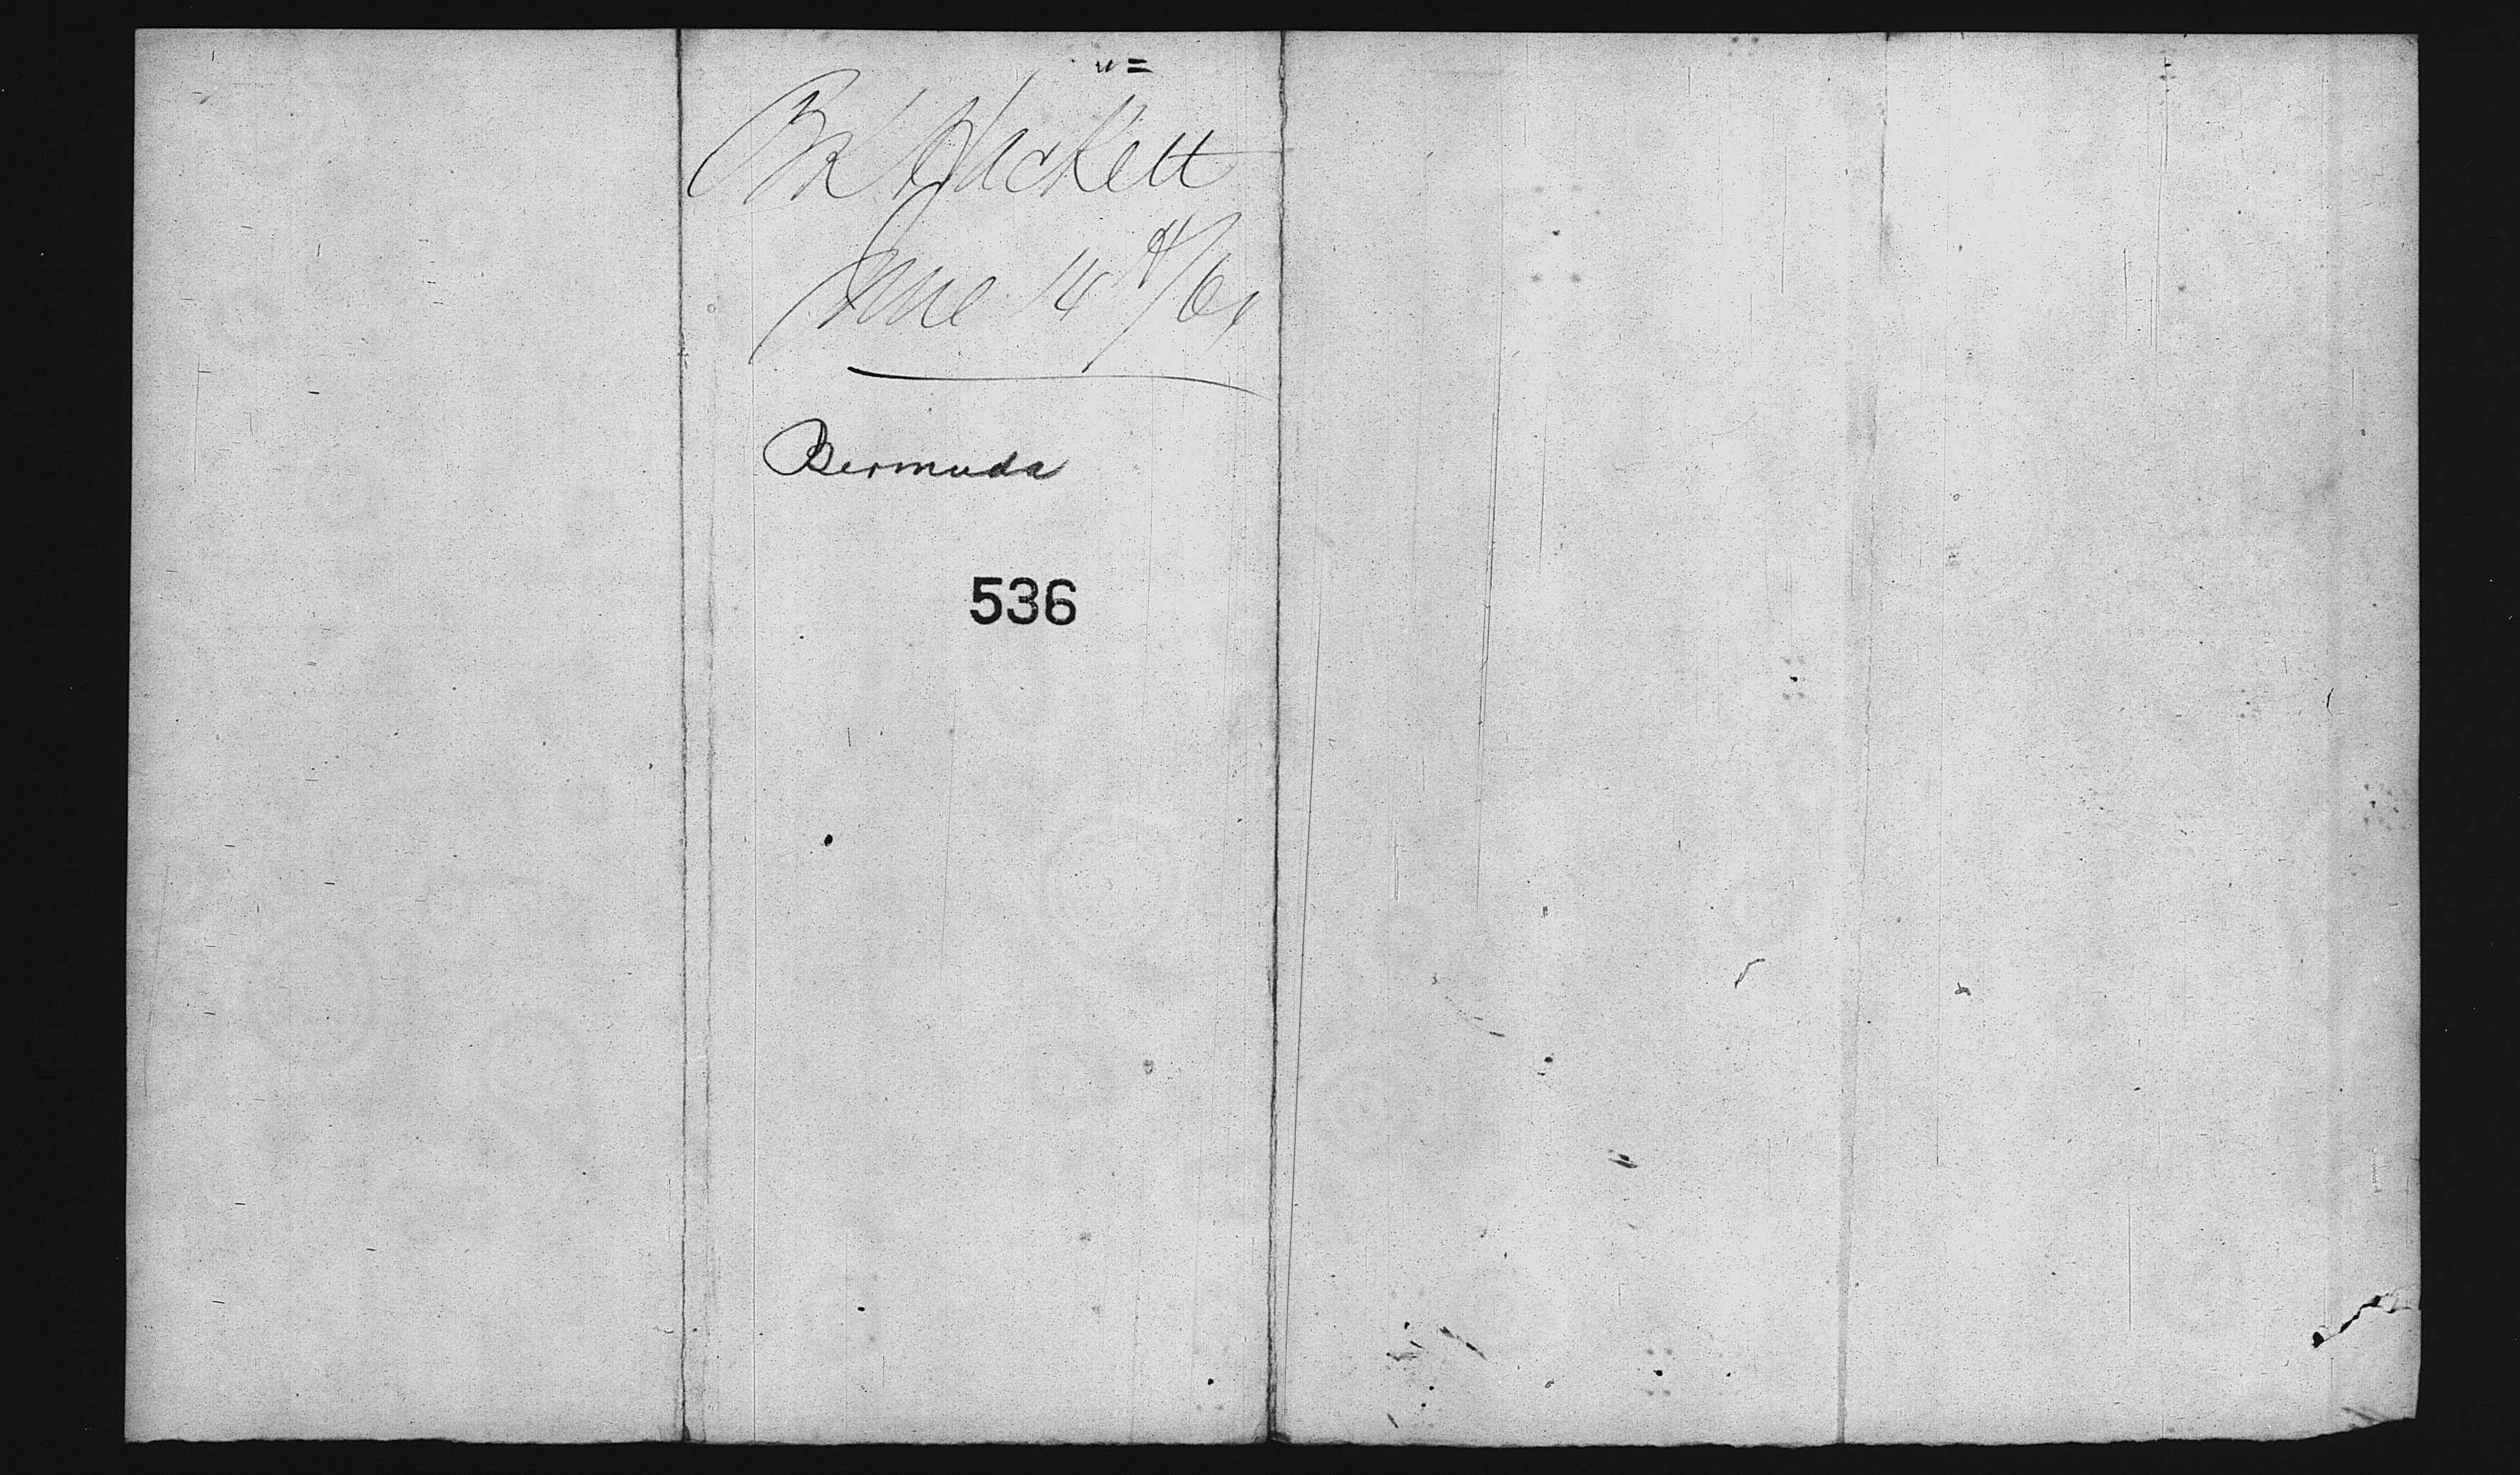 Bk Hackett
June 14th/61
Bermuda
536